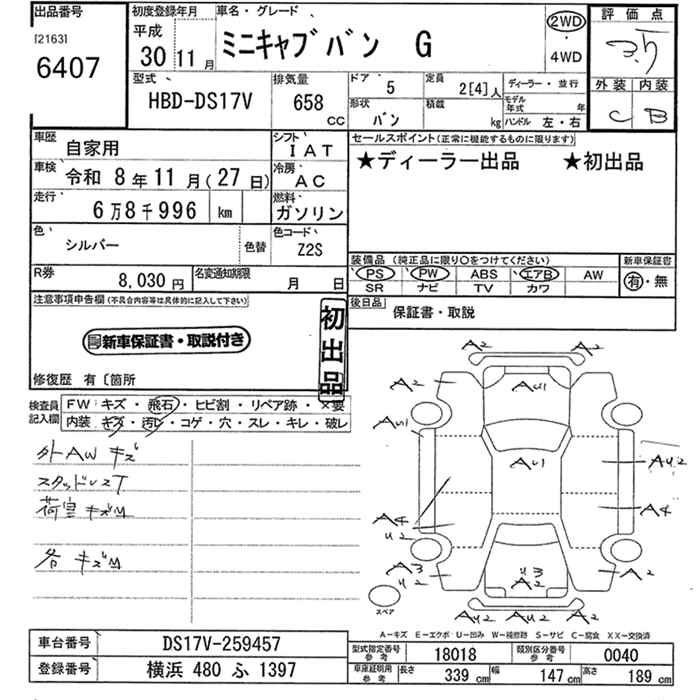 出品番号
[2163]
6407
初度登録年月
平成
30 11月
車名・グレード
ミニキャブバン G
2WD
・
4WD
評価点
3.5
外装 内装
C B
型式
HBD-DS17V
排気量
658
CC
ドア
5
定員
2[4]人
ディーラー・並行
形状
バン
積載
kg
モデル年式 年
ハンドル 左・右
車歴
自家用
シフト
IAT
車検
令和 8年11月(27日)
冷房
AC
走行
6万8千996 km
燃料
ガソリン
色
シルバー
色替
色コード
Z2S
R券
8,030円
名変通知期限
月 日
セールスポイント(正常に機能するものに限ります)
★ディーラー出品 ★初出品
装備品(純正品に限り○をつけてください)
PS PW ABS エアB AW
SR ナビ TV カワ
新車保証書
有・無
後日品
保証書・取説
注意事項申告欄(不具合内容等は具体的に記入して下さい)
新車保証書・取説付き
初出品
修復歴 有〔箇所
検査員記入欄
FW:キズ・飛石・ヒビ割・リペア跡・×要
内装:キズ・汚レ・コゲ・穴・スレ・キレ・破レ
外AW キズ
スタッドレスT
荷室キズM
各 キズM
A2 A2
A2 AU1 A2
AU1
AU1
AU2
A4
U2
A4
A3
U2
U3
A2
A2
AU2 AU2 A2
スペア
A-キズ E-エクボ U-凹み W-補修跡 S-サビ C-腐食 XX-交換済
車台番号
DS17V-259457
登録番号
横浜 480 ふ 1397
型式指定番号
参考
18018
類別区分番号
参考
0040
車庫証明用
参考
長さ 339cm 幅 147cm 高さ 189cm